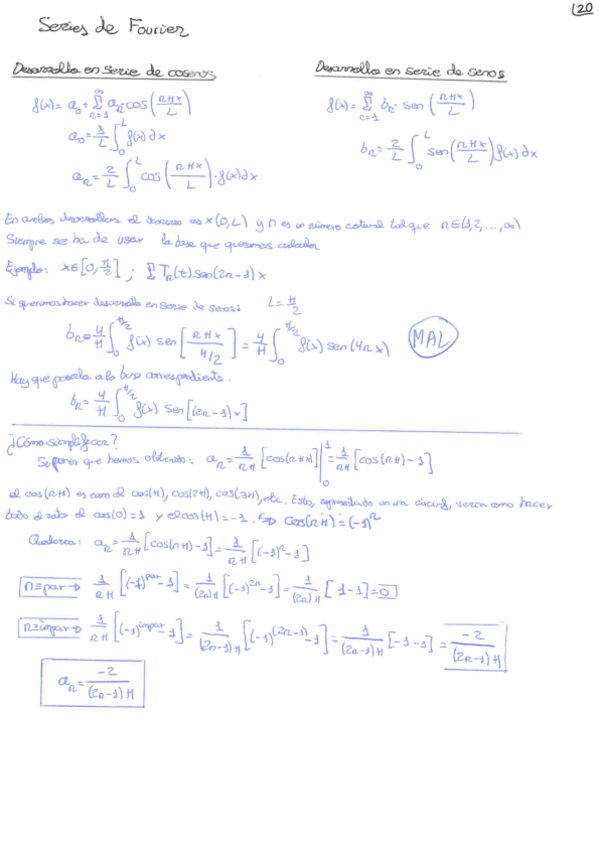 120
Series de Fourier
Desarrollo en serie de cosenos
f(x) = a₀ + Σ_{n=1}^{∞} aₙ cos(nπx/L)
a₀ = 1/L ∫₀^L f(x)dx
aₙ = 2/L ∫₀^L cos(nπx/L)·f(x)dx
Desarrollo en serie de senos
f(x) = Σ_{n=1}^{∞} bₙ·sen(nπx/L)
bₙ = 2/L ∫₀^L sen(nπx/L) f(x)dx
En ambos desarrollos el x(0,L) y n es un número natural tal que n∈(1,2,...,∞)
Siempre se ha de usar la base que queremos calcular
Ejemplo: x∈[0,π/2] ; Σ Tₙ(t) sen(2n-1)x
Si queremos hacer desarrollo en serie de senos: L = π/2
bₙ = 4/π ∫₀^{π/2} f(x) sen[nπx/(π/2)] = 4/π ∫₀^{π/2} f(x) sen(4nx) MAL
Hay que ponerla a la base correspondiente.
bₙ = 4/π ∫₀^{π/2} f(x) sen[(2n-1)x]
¿Cómo simplificar?
Suponer que hemos obtenido: aₙ = 1/nπ [cos(nπx)]|₀¹ = 1/nπ [cos(nπ)-1]
el cos(nπ) es como el cos(π), cos(2π), cos(3π), etc. Esto, representado en una circunf, sería como hacer
todo el rato el cos(0)=1 y el cos(π)=-1. => cos(nπ) = (-1)ⁿ
Quedaría: aₙ = 1/nπ [cos(nπ)-1] = 1/nπ [(-1)ⁿ-1]
n=par → 1/nπ [(-1)^par -1] = 1/(2n)π [(-1)^{2n} -1] = 1/(2n)π [1-1] = 0
n=impar → 1/nπ [(-1)^impar -1] = 1/(2n-1)π [(-1)^{(2n-1)} -1] = 1/(2n-1)π [-1-1] = -2/(2n-1)π
aₙ = -2/(2n-1)π